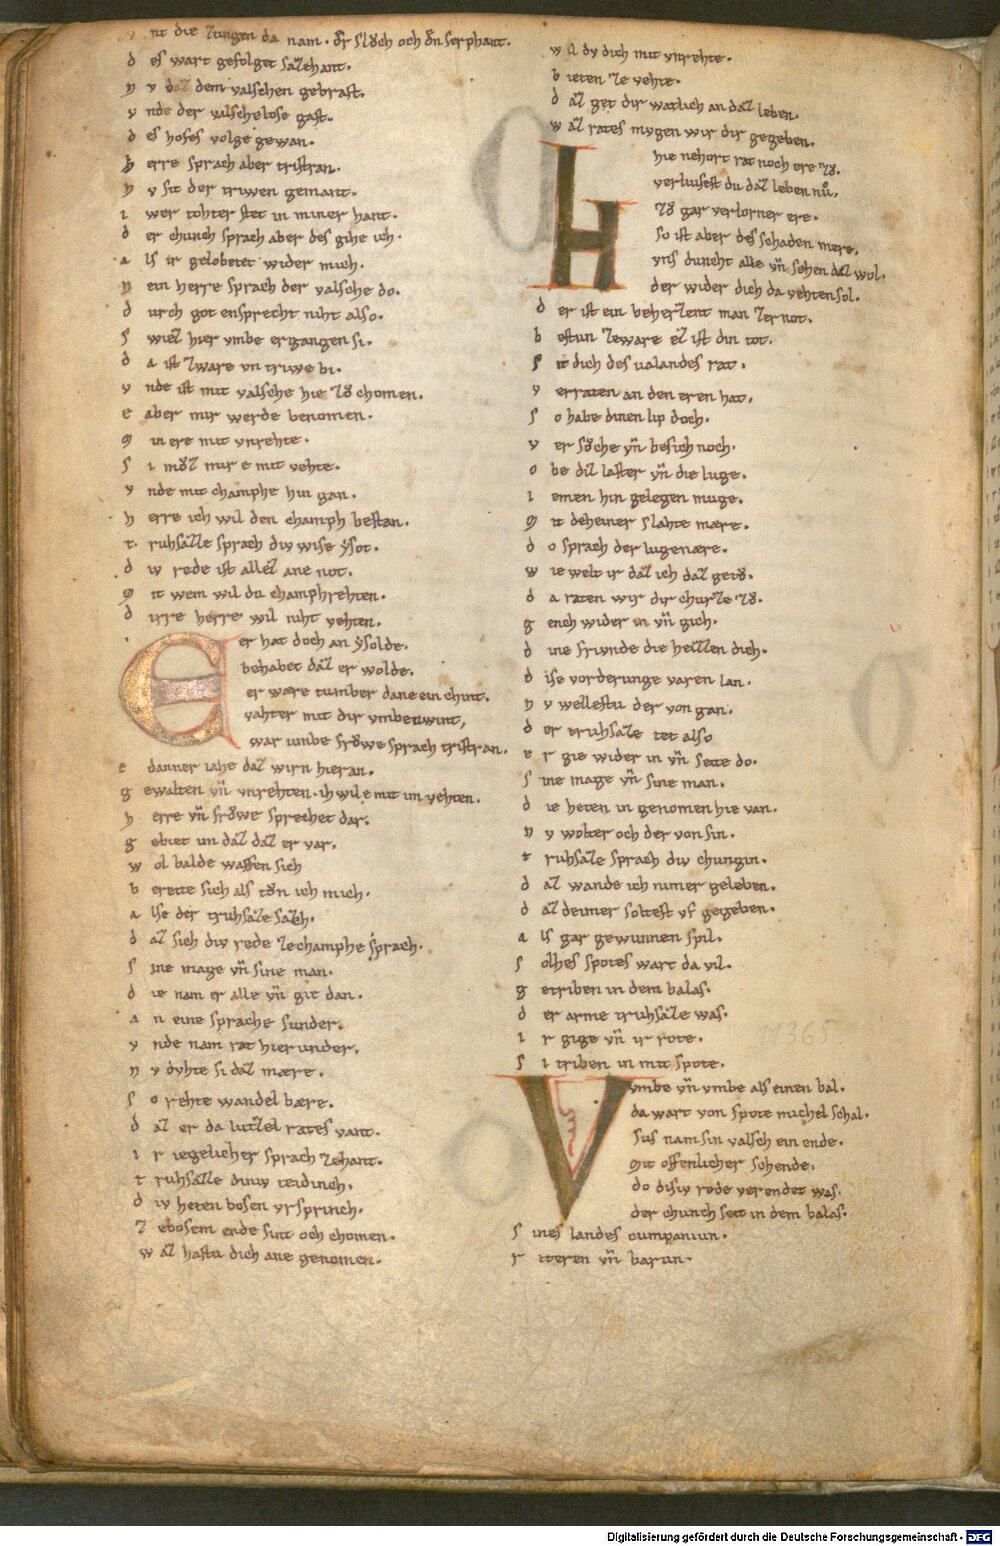 nt die zungen da nam. dˢ slůch och dˢn serphant.
d es wart gefolget sazehant.
n v daz dem valschen gebrast.
v nde der valschelose gast.
d es hofes volge gewan.
h erre sprach aber tristran.
n v sit der triwen gemant.
i wer tohter stet in miner hant.
d er chunch sprach aber des gihe ich.
a ls ir gelobetet wider mich.
n ein herre sprach der valsche do.
d urch got ensprecht niht also.
s wiez hier vmbe ergangen si.
d a ist zware vn triwe bi.
v nde ist mit valsche hie zů chomen.
e aber mir werde benomen.
m in ere mit vnrehte.
s i můz mir e mit vehte.
v nde mit champhe hin gan.
h erre ich wil den champh bestan.
t ruhsæzze sprach div wise ẏsot.
d iv rede ist allez ane not.
m it wem wil du champhrehten.
d irre herre wil niht vehten.
Er hat doch an ẏsolde.
behabet daz er wolde.
er wære tumber dane ein chint.
vahter mit dir vmbe wint,
war umbe frowe sprach tristran.
e danner iahe daz wirn hieran.
g ewalten vn̄ vnrehten. ih wil e mit im vehten.
h erre vn̄ frowe sprechet dar.
g ebiet im daz daz er var.
w ol balde waffen sich
b ereite sich als tůn ich mich.
a lse der truhsæze sah.
d az sich div rede zechamphe sprach.
s ine mage vn̄ sine man.
d ie nam er alle vn̄ git dan.
a n eine sprache sunder.
v nde nam rat hier under.
n v dvhte si daz mære.
s o rehte wandel bære.
d az er da lutzel rates vant.
i r iegelicher sprach zehant.
t ruhsæzze diniv teidinch.
d iv heten bosen vrsprinch.
z ebosem ende sint och chomen.
w az hastu dich ane genomen.
w il dv dich mit vnrehte.
b ieten ze vehte.
d az get dir watlich an daz leben.
w az rates mvgen wir dir gegeben.
Hie nehort rat noch ere zů.
verliusest du daz leben nů.
zů gar verlorner ere.
so ist aber des schaden mere.
vns duncht alle vn̄ sehen daz wol.
der wider dich da vehten sol.
d er ist ein beherzent man zer not.
b estun zeware ez ist din tot.
s it dich des ualandes rat.
v erraten an den eren hat.
s o habe dinen lip doch.
v er sůche vn̄ besich noch.
o be diz laster vn̄ die luge.
i emen hin gelegen muge.
m it deheiner slahte mære.
d o sprach der lugenære.
w ie welt ir daz ich daz getů.
d a raten wir dir churze zů.
g ench wider in vn̄ gich.
d ine frivnde die heizzen dich.
d ise vorderunge varen lan.
n v wellestu der von gan.
d er truhsæze tet also
e r gie wider in vn̄ seite do.
s ine mage vn̄ sine man.
d ie heten in genomen hie van.
n v wolter och der von sin.
t ruhsæze sprach div chungin.
d az wande ich nimer geleben.
d az deiuner soltest vf gegeben.
a ls gar gewunnen spil.
s olhes spotes wart da vil.
g etriben in dem balas.
d er arme truhsæze was.
i r gige vn̄ ir rote.
s i triben in mit spote.
Vmbe vn̄ vmbe als einen bal.
da wart von spote michel schal.
sus nam sin valsch ein ende.
mit offenlicher schende.
do disiv rede verendet was.
der chunch seit in dem balas.
s ines landes cumpaniun.
r iteren vn̄ barun.
1365
Digitalisierung gefördert durch die Deutsche Forschungsgemeinschaft - DFG